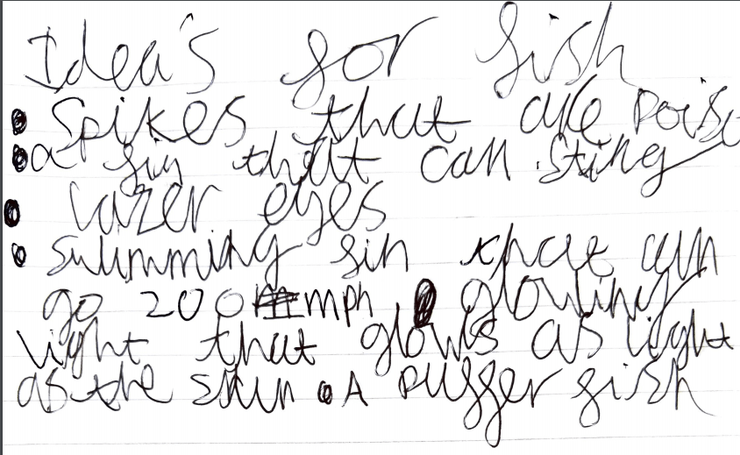 Idea's for fish
• Spikes that are poiso
• a fin that can sting
• Lazer eyes
• swimming fin that can
go 200 mph • glowing
light that glows as light
as the sun • A puffer fish